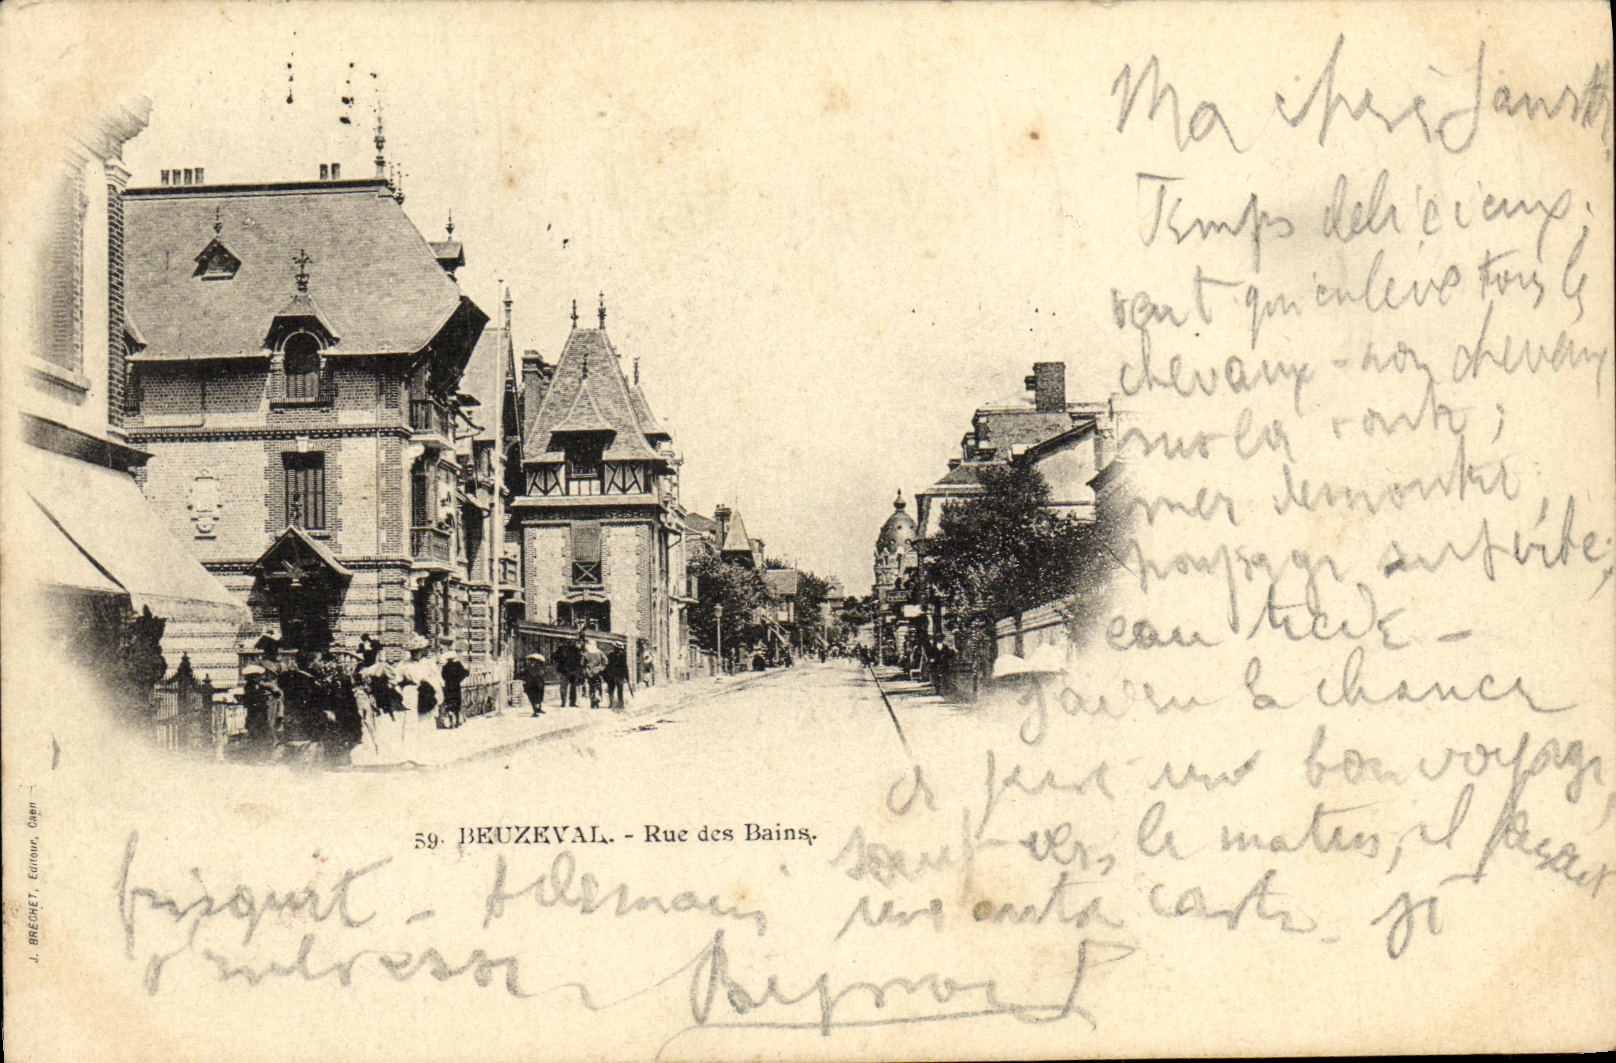 Ma chère
Temps délicieux;
vent qui enlève tous les
chevaux - non cheveux
sur la route;
mer démontée,
paysage
eau tiède -
J'ai eu la chance
de faire un bon voyage,
sauf vers le matin, il faisait
frisquet - A demain une autre carte. Je
t'embrasse
59. BEUZEVAL. - Rue des Bains.
J. BRÉCHET, Editeur, Caen